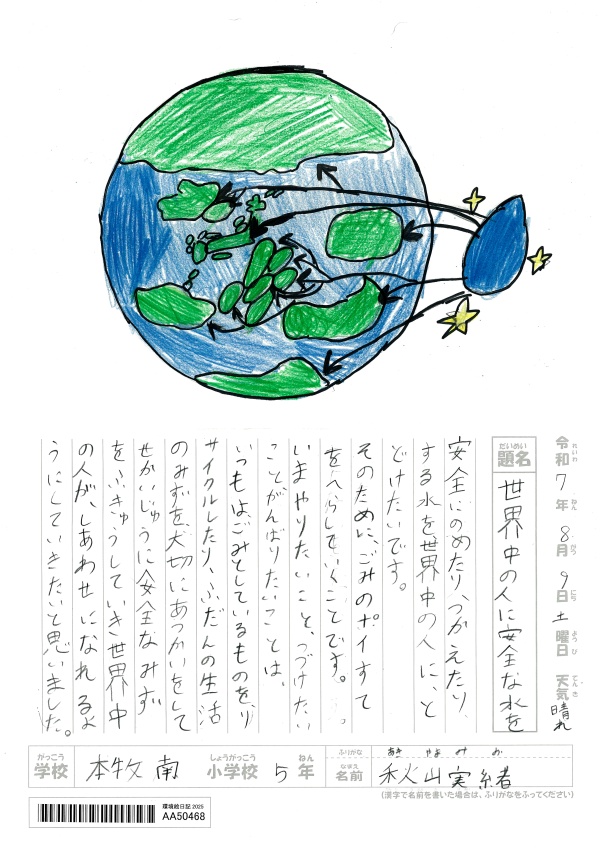 令和7年8月9日土曜日 天気晴れ
れいわ ねん がつ にち ようび てんき
題名 世界中の人に安全な水を
だいめい
安全にのめたり、つかえたり、
する水を世界中の人に、と
どけたいです。
そのために、ごみのポイすて
をへらしていくことです。
いまやりたいこと、つづけたい
ことがんばりたいことは、
いつもはごみとしているものを、り
サイクルしたり、ふだんの生活
のみずを、大切にあつかいをして
せかいじゅうに安全なみず
をふきゅうしていき世界中
の人が、しあわせになれるよ
うにしていきたいと思いました。
がっこう しょうがっこう ねん ふりがな あきやま みお
学校 本牧南 小学校 5年 なまえ 名前 秋山実緒
(漢字で名前を書いた場合は、ふりがなをふってください)
環境絵日記 2025
AA50468